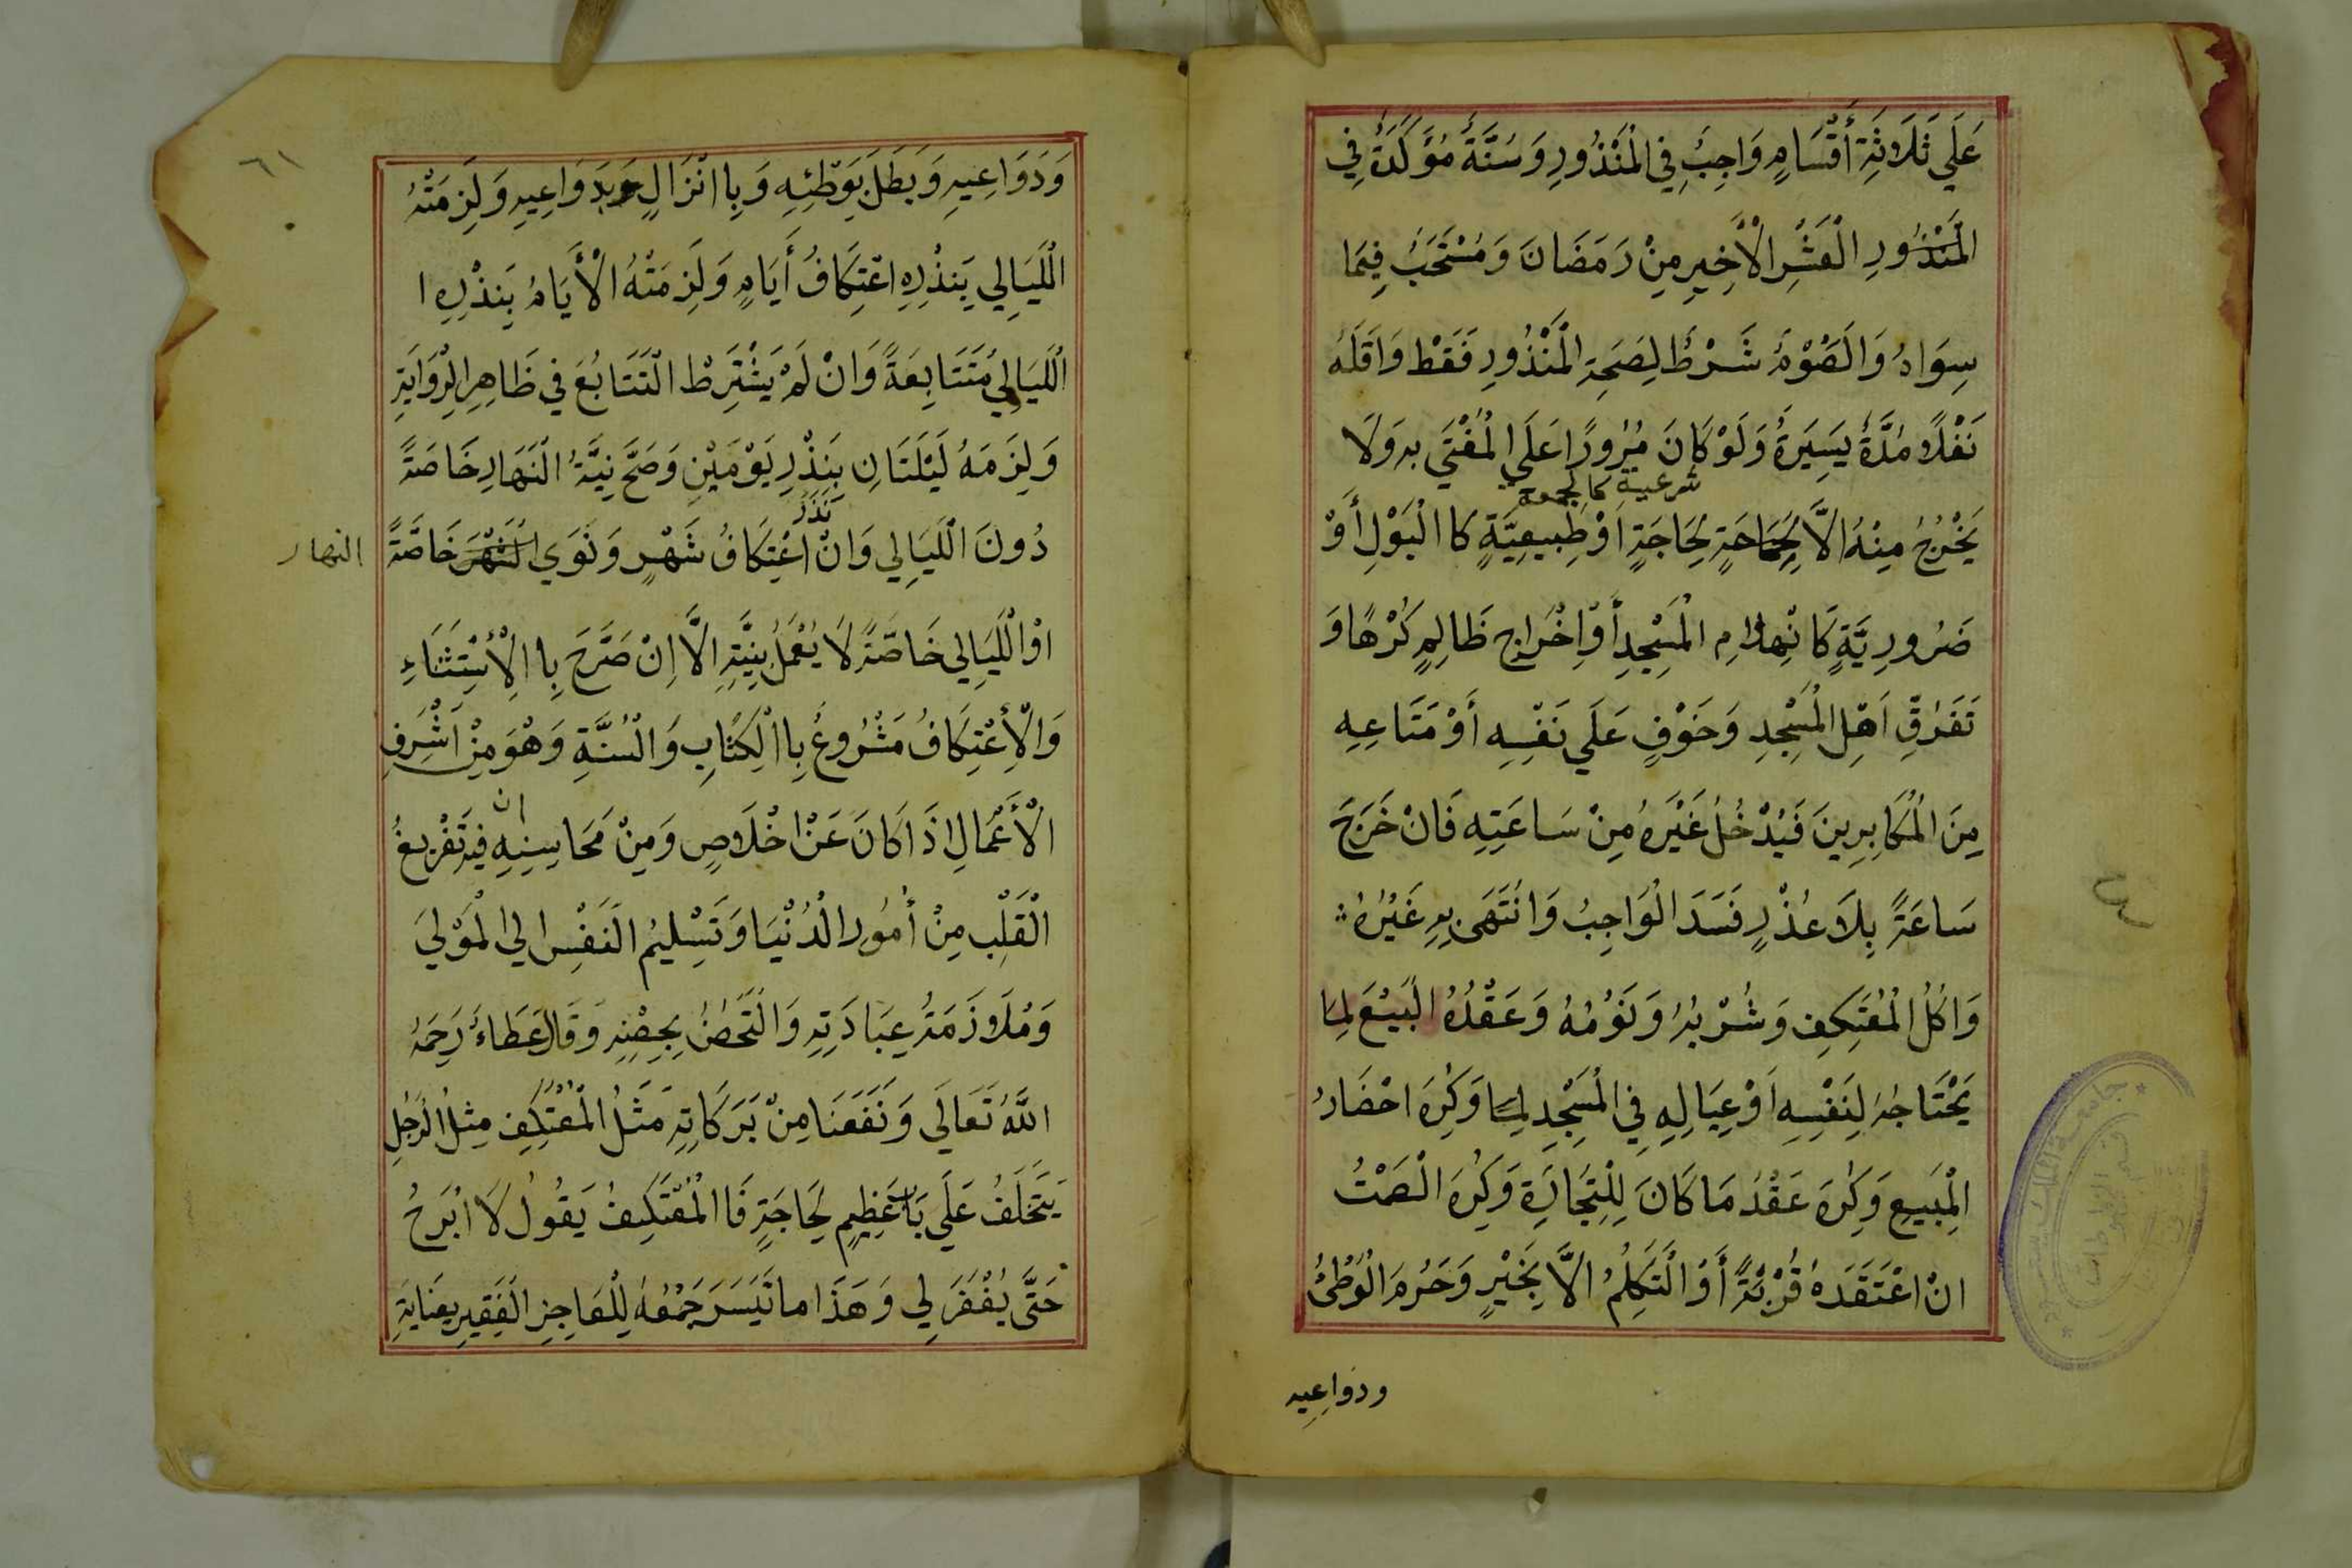 عَلَي ثَلَاثَةِ أَقْسَامٍ وَاجِبٌ فِي الْمَنْذُورِ وَسُنَّةٌ مُؤَكَّدَةٌ فِي
الْمَنْذُورِ الْعَشْرِ الْأَخِيرِ مِنْ رَمَضَانَ وَمُسْتَحَبٌّ فِيمَا
سِوَاهُ وَالصَّوْمُ شَرْطٌ لِصَحَّةِ الْمَنْذُورِ فَقَطْ وَاقَلَّهُ
نَفْلًا مُدَّةٌ يَسِيرَةٌ وَلَوْ كَانَ مُرُورًا عَلَي الْمُفْتَي بِهِ وَلَا
شرعية كالجمعة
يَخْرُجُ مِنْهُ الَّا لِحَاجَةٍ لِحَاجَةٍ اَوْ طَبِيعِيَّةٍ كا الْبَوْلِ أَوْ
ضَرُورِيَّةٍ كَانْهِدَامِ الْمَسْجِدِ أَوْ اِخْرَاجِ ظَالِمٍ كُرْهًا وَ
تَفَرُّقِ اَهْلِ الْمَسْجِدِ وَخَوْفٍ عَلَي نَفْسِهِ أَوْ مَتَاعِهِ
مِنَ الْمُكَابِرِينَ فَيُدْخُلُ غَيْرَهُ مِنْ سَاعَتِهِ فَانْ خَرَجَ
سَاعَةً بِلَا عُذْرٍ فَسَدَ الْوَاجِبُ وَانْتَهَى بِهِ غَيْرُهُ
وَاكْلُ الْمُعْتَكِفِ وَشُرْبُهُ وَنَوْمُهُ وَعَقْدُهُ الْبَيْعَ لِمَا
يَحْتَاجُهُ لِنَفْسِهِ اَوْ عِيَالِهِ فِي الْمَسْجِدِ لِمَا وَكُرِهَ احْضَارُ
الْمَبِيعِ وَكُرِهَ عَقْدُ مَا كَانَ لِلتِّجَارَةِ وَكُرِهَ الْصَمْتُ
انْ اعْتَقَدَهُ قُرْبَةً أَوْ الْتَكَلُّمُ الَّا بِخَيْرٍ وَحَرُمَ الْوَطْئُ
ودواعيه
٦١
وَدَوَاعِيهِ وَبَطَلَ بِوَطْئِهِ وَبِا انْزَالٍ وَبِدَوَاعِيهِ وَلَزِمَتْهُ
الْلَيَالِي بِنَذْرِهِ اعْتِكَافُ أَيَامٍ وَلَزِمَتْهُ الْأَيَامُ بِنَذْرِهِ ا
اللَّيَالِي مُتَتَابِعَةً وَانْ لَمْ يَشْتَرِطْ التَتَابُعَ فِي ظَاهِرِ الرِّوَايَةِ
وَلَزِمَهُ لَيْلَتَانِ بِنَذْرِ يَوْمَيْنِ وَصَحَّ نِيَّةُ النَهَارِ خَاصَةً
نَذَرَ
دُونَ اللَيَالِي وَانْ اعْتِكَافُ شَهْرٍ وَنَوَي الشَهْرَ خَاصَّةً
النهار
اوْ الْلَيَالِي خَاصَّةً لَا يُعْمَلُ بِنِيَّتِهِ الَّا اِنْ صَرَّحَ بِا الْأسْتِثْنَاءِ
وَالْأعْتِكَافُ مَشْرُوعٌ بِا الْكِتَابِ وَالْسُنَّةِ وَهُوَ مِنْ اَشْرَفِ
الْأَعْمَالِ اذَا كَانَ عَنْ اخْلَاصٍ وَمِنْ مَحَاسِنِهِ ان فِيهِ تَفْرِيغُ
الْقَلْبِ مِنْ أُمُورِ الْدُنْيَا وَتَسْلِيمُ الْنَفْسِ الي الْمَوْلَيَ
وَمُلَازَمَةُ عِبَادَتِهِ وَالْتَّحَصُنُ بِحِصْنِهِ وَقَالَ عَطَاءُ رَحِمَهُ
اللَّهُ تَعَالَي وَنَفَعَنَا مِنْ بَرَكَاتِهِ مَثَلُ الْمُعْتَكِفِ مِثلُ الْرَجُلِ
يَتَخَلَفُ عَلَي بَابٍ عَظِيمٍ لِحَاجَةٍ فَا الْمُعْتَكِفُ يَقُولُ لَا ابْرَحُ
حَتَّى يُغْفَرَ لِي وَهَذَا ما تَيَسَرَ جَمْعُهُ لِلْعَاجِزِ الْفَقِيرِ بِعِنَايَةِ